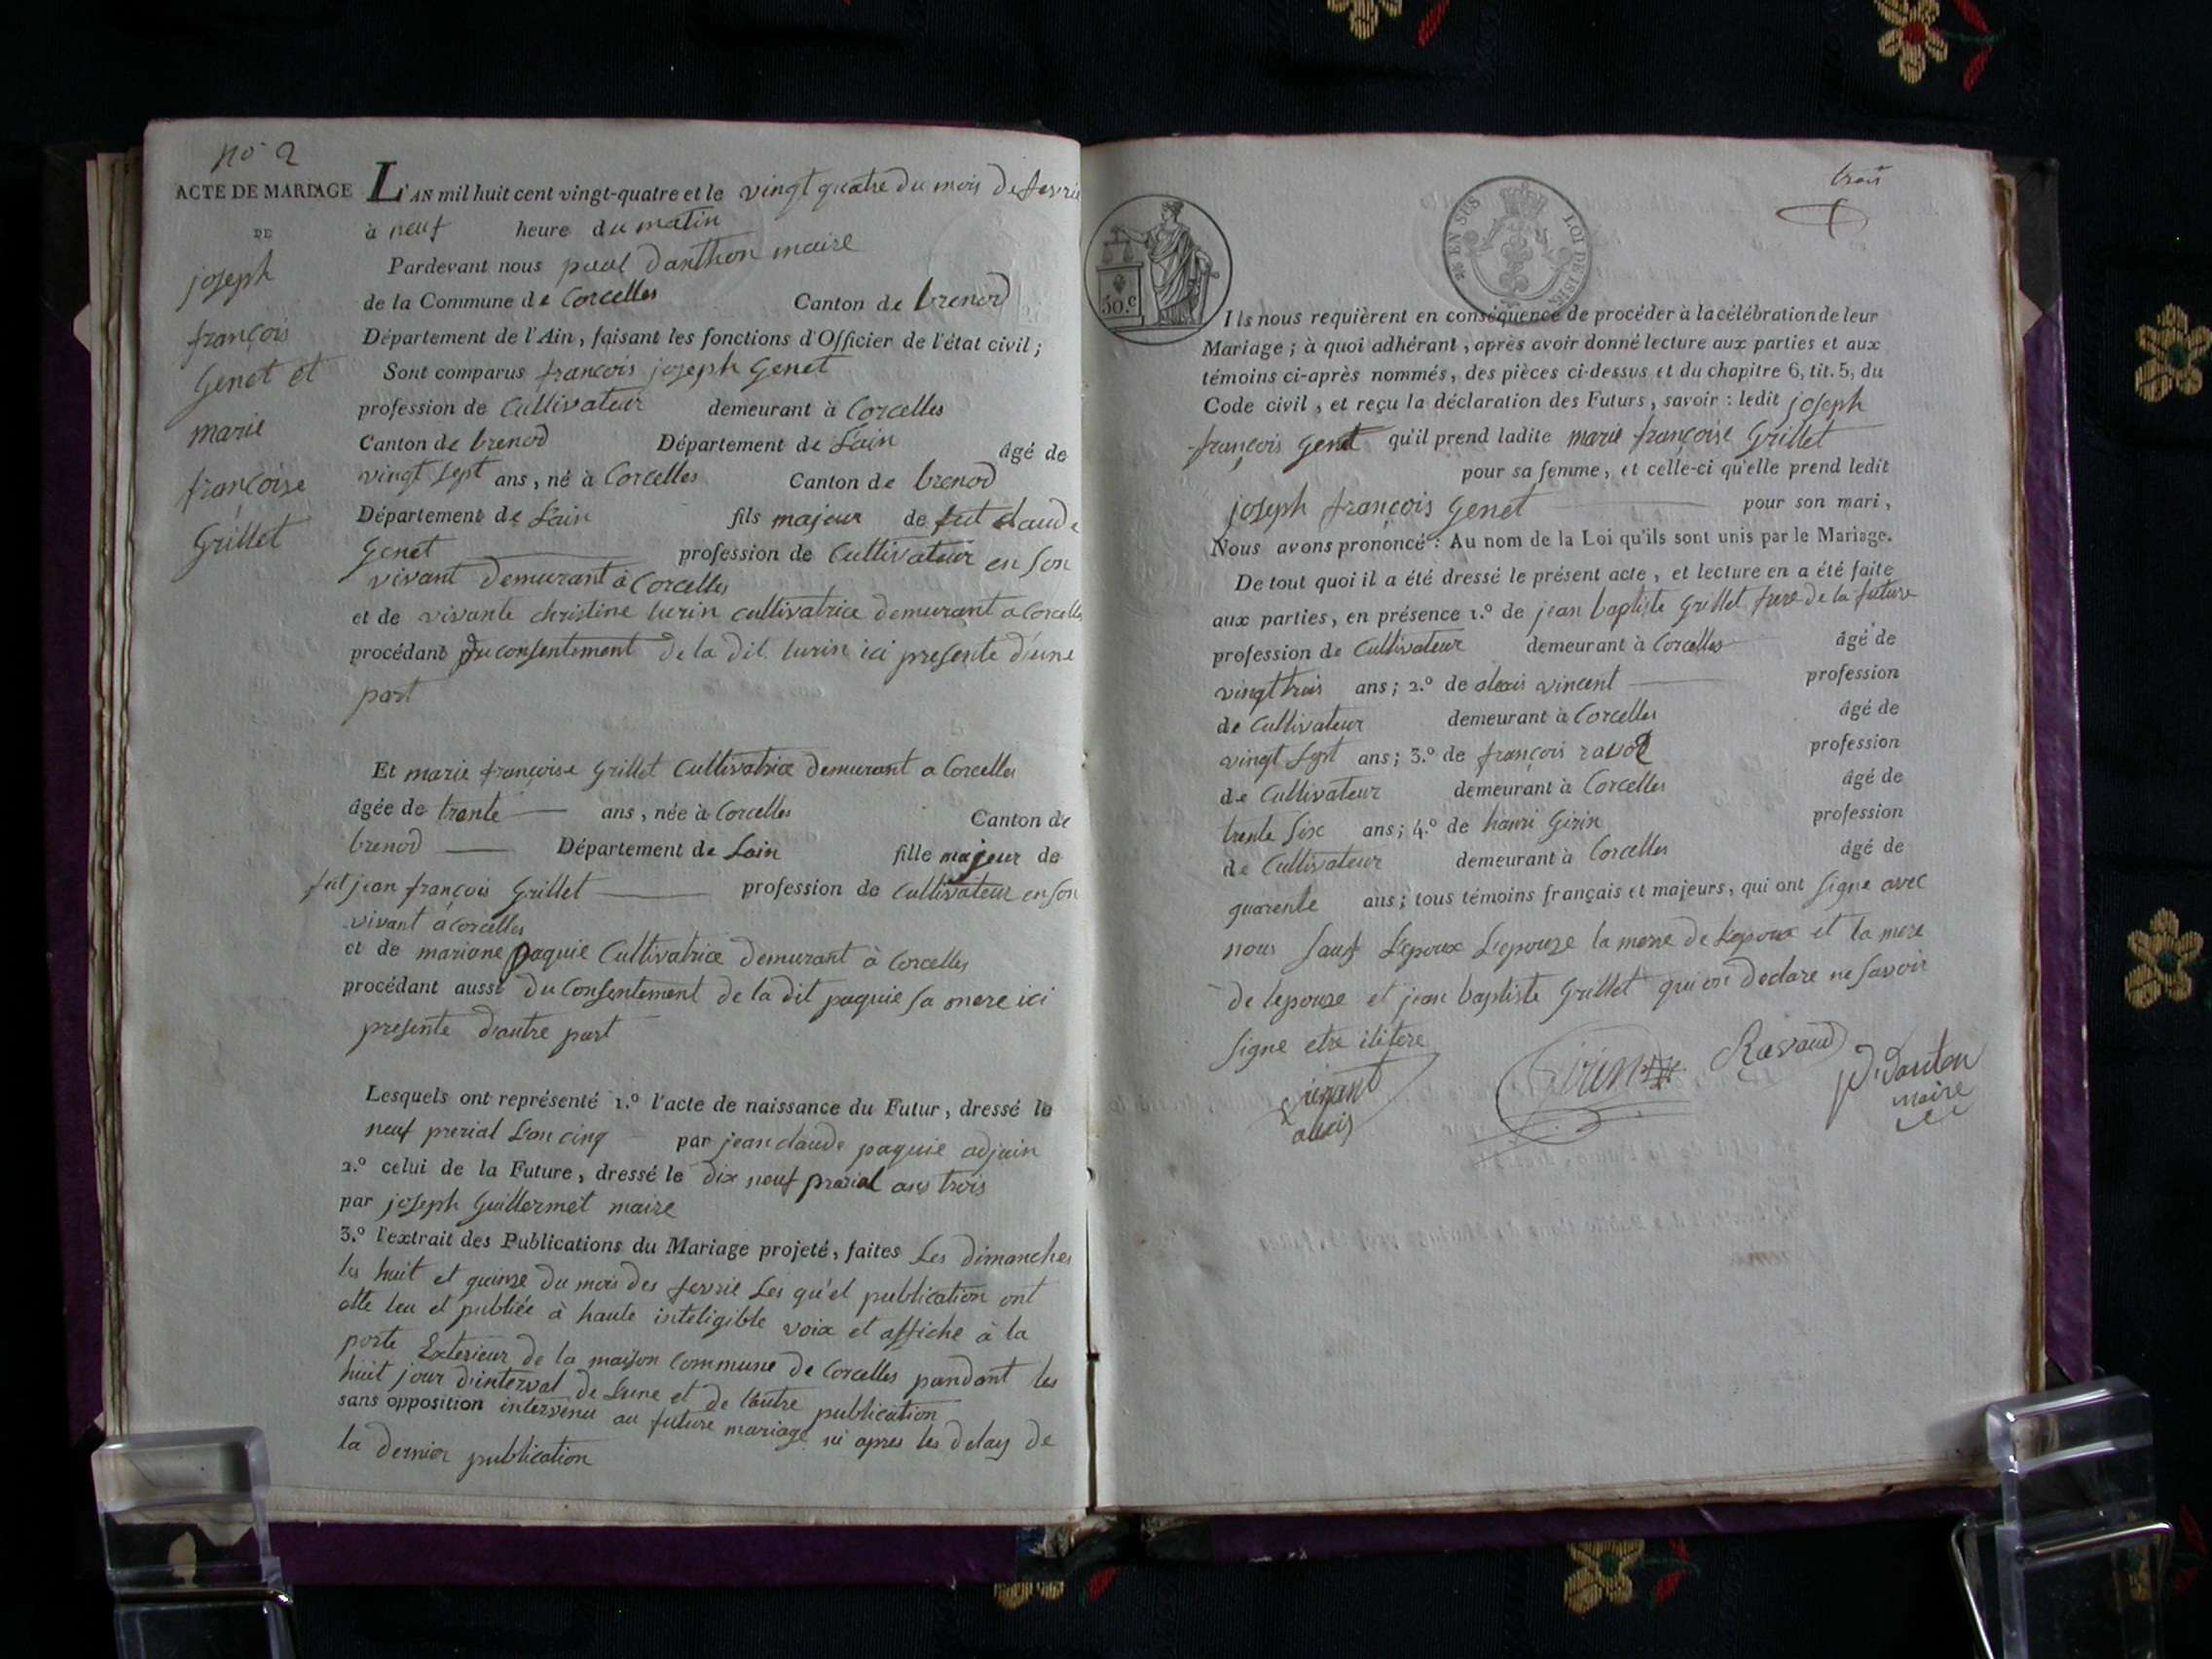 no 2
ACTE DE MARIAGE
DE
joseph
françois
Genet et
marie
françoise
Grillet
L'AN mil huit cent vingt-quatre et le vingt quatre du mois de fevrie
à neuf heure du matin
Pardevant nous paul danthon maire
de la Commune de Corcelles Canton de brenod
Département de l'Ain, faisant les fonctions d'Officier de l'état civil;
Sont comparus françois joseph Genet
profession de Cultivateur demeurant à Corcelles
Canton de brenod Département de Lain âgé de
vingt sept ans, né à Corcelles Canton de brenod
Département de Lain fils majeur de fut claude
Genet profession de Cultivateur en son
vivant demeurant à Corcelles
et de vivante christine turin cultivatrice demurant a Corcelles
procédant du consentement de la dit turin ici presente d'une
part
Et marie françoise Grillet Cultivatrice demurant a Corcelles
âgée de trente ans, née à Corcelles Canton de
brenod Département de Lain fille majeur de
fut jean françois Grillet profession de Cultivateur en son
vivant a corcelles
et de mariane paquie Cultivatrice demurant à Corcelles
procédant aussi du Consentement de la dit paquie sa mere ici
presente d'autre part
Lesquels ont représenté 1.º l'acte de naissance du Futur, dressé le
neuf prerial L'an cinq par jean claude paquie adjoin
2.º celui de la Future, dressé le dix neuf prarial ans trois
par joseph Guillermet maire
3.º l'extrait des Publications du Mariage projeté, faites Les dimanches
les huit et quinze du mois des fevrie Les qu'el publication ont
ette leu et publiée à haute inteligible voix et affiche à la
porte Exterieur de la maison Commune de Corcelles pandant les
huit jour d'interval de Lune et de l'autre publication
sans opposition intervenu au future mariage ni apres les delay de
la dernier publication
trois
50. C
25 EN SUS LOI DE 1816
Ils nous requièrent en conséquence de procéder à la célébration de leur
Mariage; à quoi adhérant, après avoir donné lecture aux parties et aux
témoins ci-après nommés, des pièces ci-dessus et du chapitre 6, tit. 5, du
Code civil, et reçu la déclaration des Futurs, savoir: ledit joseph
françois genet qu'il prend ladite marie françoise Grillet
pour sa femme, et celle-ci qu'elle prend ledit
joseph françois Genet pour son mari,
Nous avons prononcé: Au nom de la Loi qu'ils sont unis par le Mariage.
De tout quoi il a été dressé le présent acte, et lecture en a été faite
aux parties, en présence 1.º de jean baptiste Grillet frere de la future
profession de Cultivateur demeurant à Corcelles âgé de
vingt trois ans; 2.º de alexis vincent profession
de Cultivateur demeurant à Corcelles âgé de
vingt Sept ans; 3.º de françois ravod profession
de Cultivateur demeurant à Corcelles âgé de
trente Six ans; 4.º de hanri Girin profession
de Cultivateur demeurant à Corcelles âgé de
quarente ans; tous témoins français et majeurs, qui ont Signe avec
nous sauf L'epoux L'epouze la mere de Lepoux et la mere
de lepouze et jean baptiste Grillet qui on declare ne savoir
signe etre ilitere
Girin Ravaud P. Danton
maire